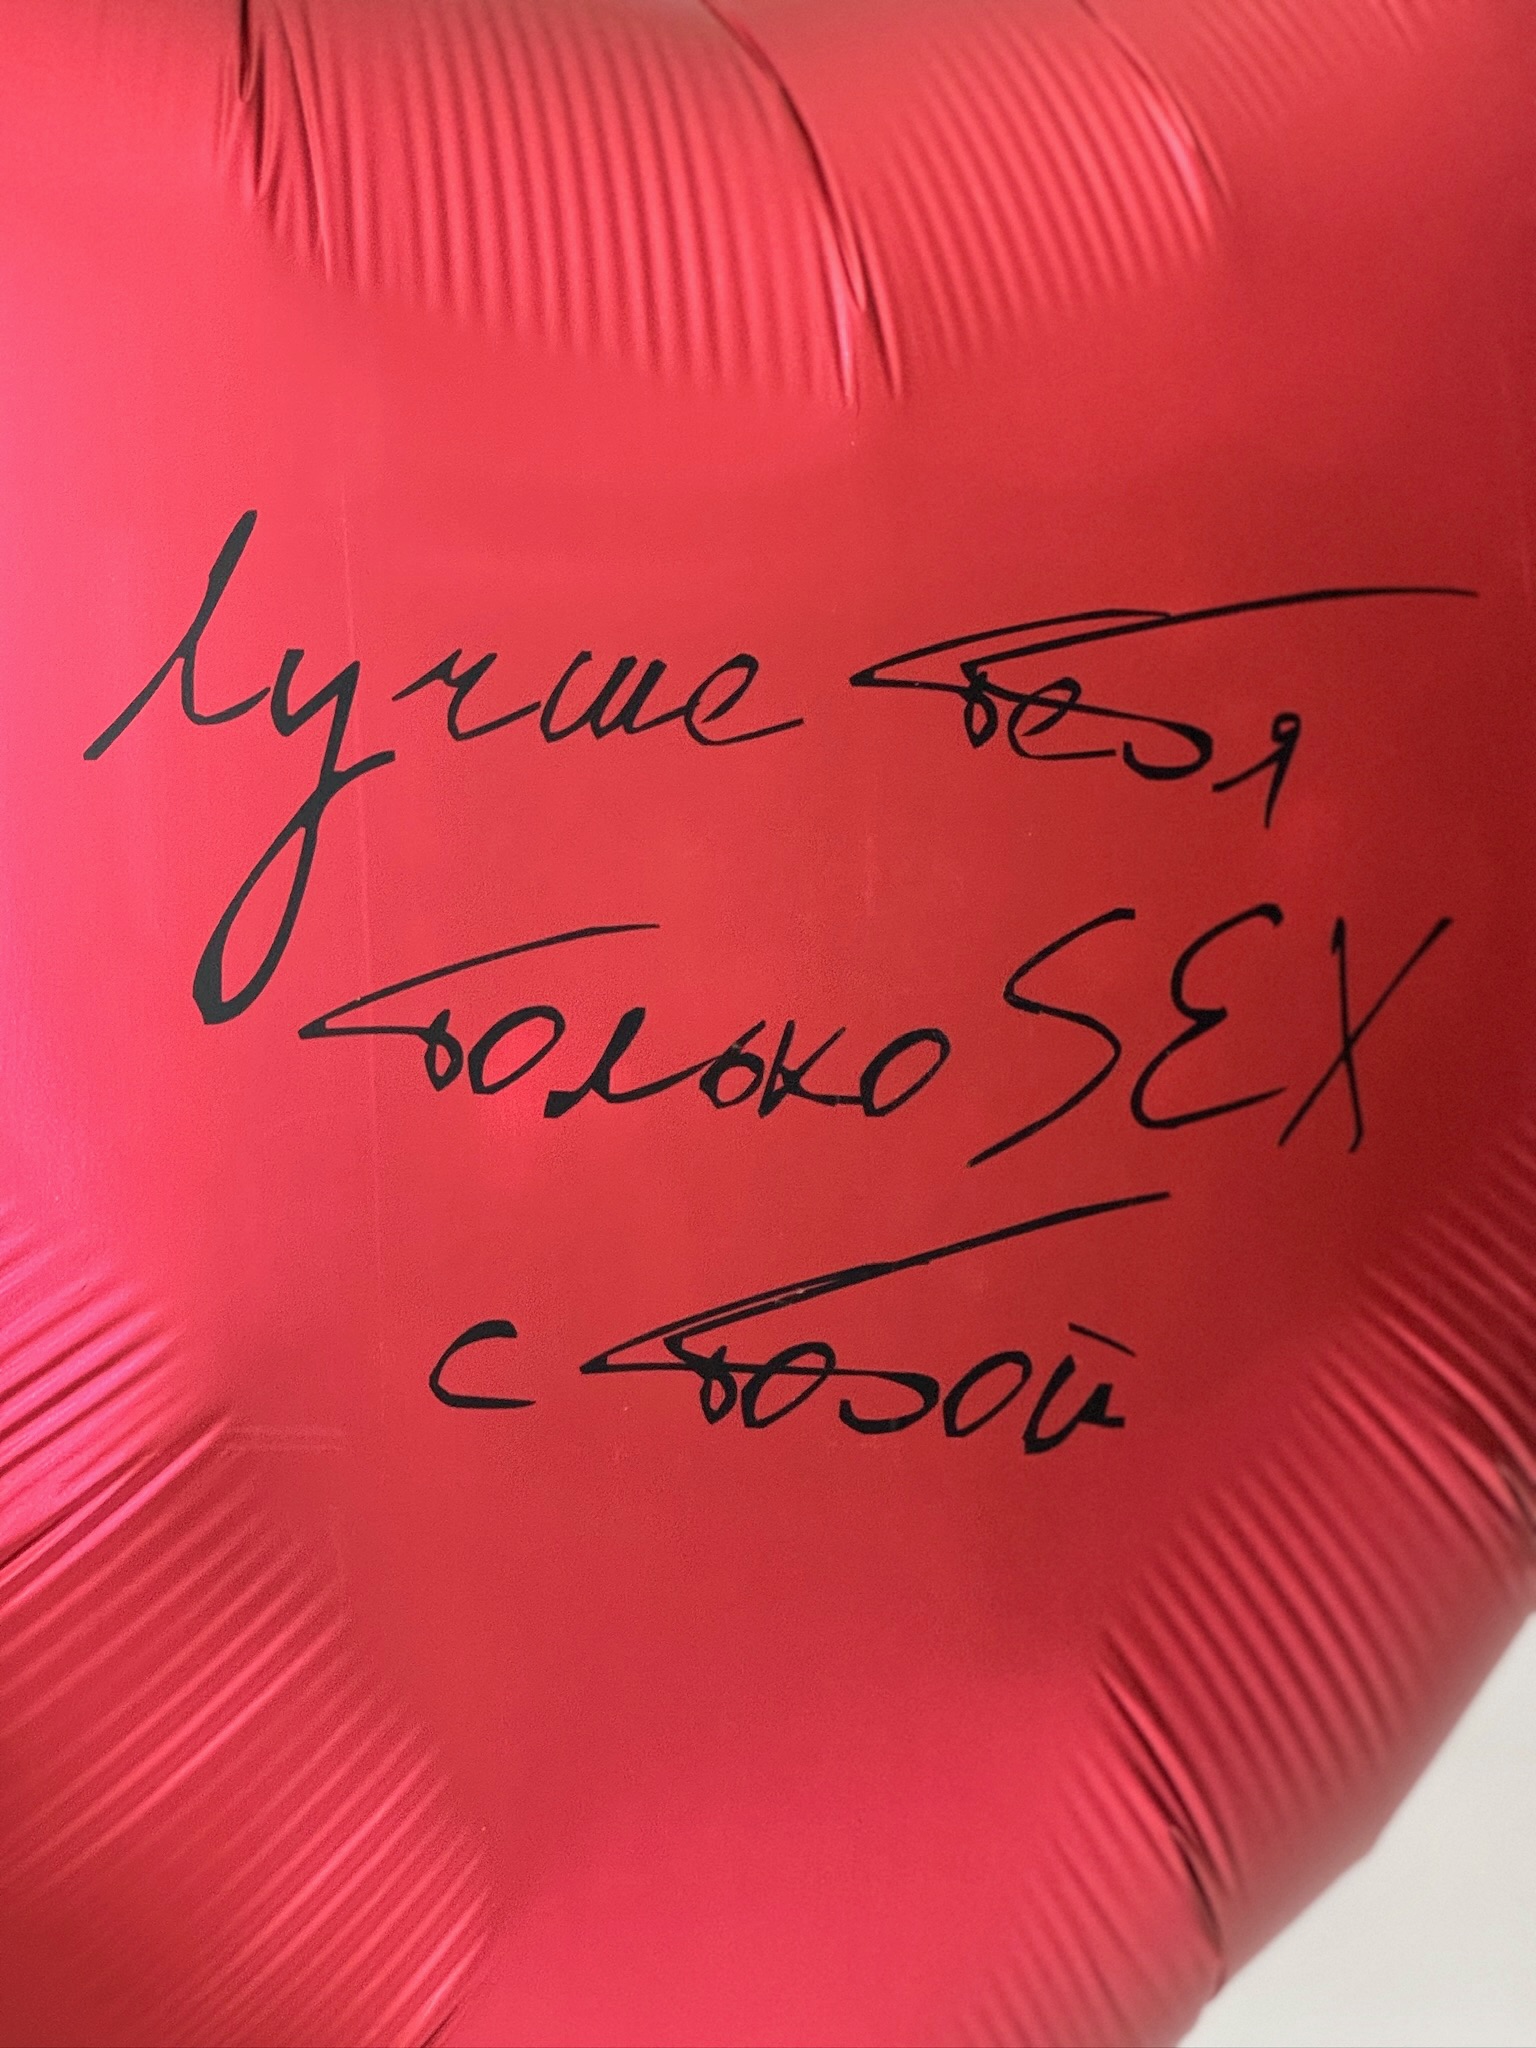 Лучше тебя
только SEX
с тобой